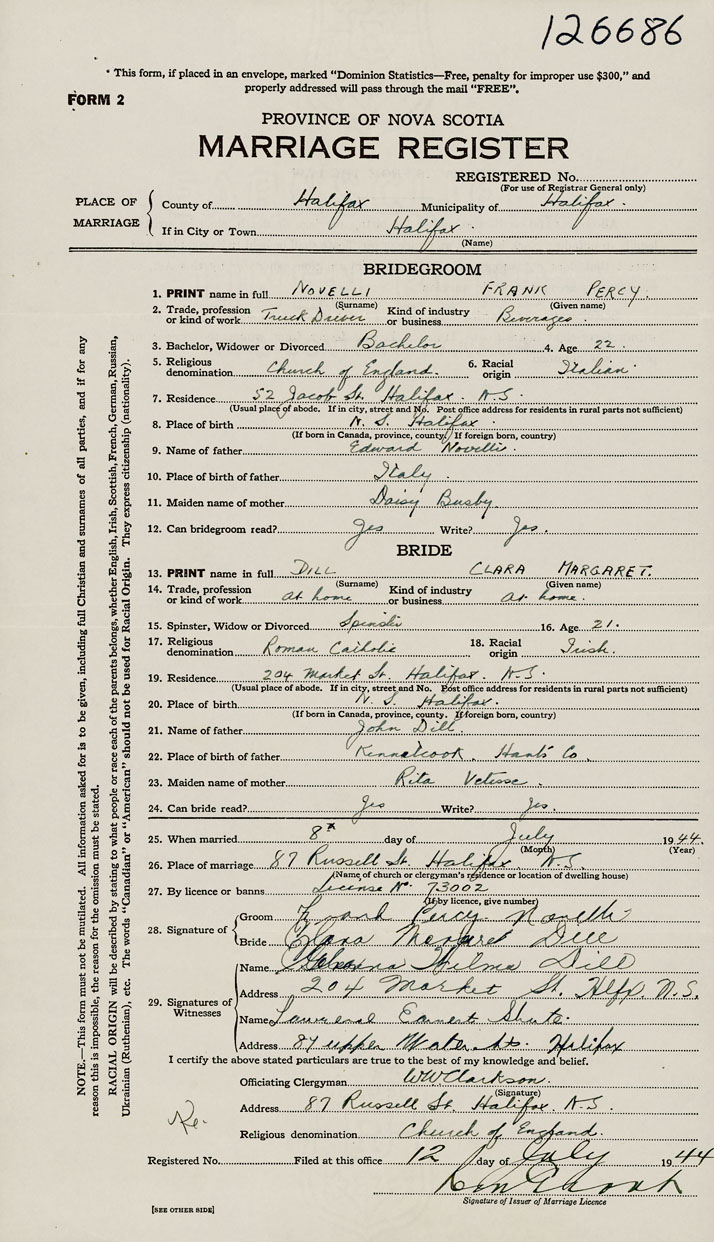 126686
* This form, if placed in an envelope, marked "Dominion Statistics—Free, penalty for improper use $300," and
properly addressed will pass through the mail "FREE".
FORM 2
PROVINCE OF NOVA SCOTIA
MARRIAGE REGISTER
REGISTERED No.
(For use of Registrar General only)
PLACE OF MARRIAGE
County of Halifax Municipality of Halifax.
If in City or Town Halifax.
(Name)
BRIDEGROOM
1. PRINT name in full NOVELLI FRANK PERCY.
(Surname) (Given name)
2. Trade, profession or kind of work Truck Driver Kind of industry or business Beverages.
3. Bachelor, Widower or Divorced Bachelor 4. Age 22.
5. Religious denomination Church of England. 6. Racial origin Italian.
7. Residence 52 Jacob St. Halifax. N.S.
(Usual place of abode. If in city, street and No. Post office address for residents in rural parts not sufficient)
8. Place of birth N. S. Halifax.
(If born in Canada, province, county. If foreign born, country)
9. Name of father Edward Novelli.
10. Place of birth of father Italy.
11. Maiden name of mother Daisy Busby.
12. Can bridegroom read? Yes Write? Yes.
BRIDE
13. PRINT name in full DILL CLARA MARGARET.
(Surname) (Given name)
14. Trade, profession or kind of work at home Kind of industry or business at home.
15. Spinster, Widow or Divorced Spinster 16. Age 21.
17. Religious denomination Roman Catholic 18. Racial origin Irish.
19. Residence 204 Market St. Halifax. N.S.
(Usual place of abode. If in city, street and No. Post office address for residents in rural parts not sufficient)
20. Place of birth N. S. Halifax.
(If born in Canada, province, county. If foreign born, country)
21. Name of father John Dill.
22. Place of birth of father Hants Co.
23. Maiden name of mother Rita
24. Can bride read? Yes Write? Yes.
25. When married 8th day of July 1944.
(Month) (Year)
26. Place of marriage 87 Russell St. Halifax. N.S.
(Name of church or clergyman's residence or location of dwelling house)
27. By licence or banns License No. 73002
(If by licence, give number)
28. Signature of
Groom Frank Percy Novelli
Bride Clara Margaret Dill
29. Signatures of Witnesses
Name Thelma Dill
Address 204 Market St. Hlfx. N.S.
Name Earnest
Address 84 upper Water St. Halifax
I certify the above stated particulars are true to the best of my knowledge and belief.
Officiating Clergyman WW Clarkson.
(Signature)
Address 87 Russell St. Halifax. N.S.
Religious denomination Church of England.
Registered No. Filed at this office 12 day of July 1944
Signature of Issuer of Marriage Licence
[SEE OTHER SIDE]
NOTE.—This form must not be mutilated. All information asked for is to be given, including full Christian and surnames of all parties, and if for any
reason this is impossible, the reason for the omission must be stated.
RACIAL ORIGIN will be described by stating to what people or race each of the parents belongs, whether English, Irish, Scottish, French, German, Russian,
Ukrainian (Ruthenian), etc. The words "Canadian" or "American" should not be used for Racial Origin. They express citizenship (nationality).